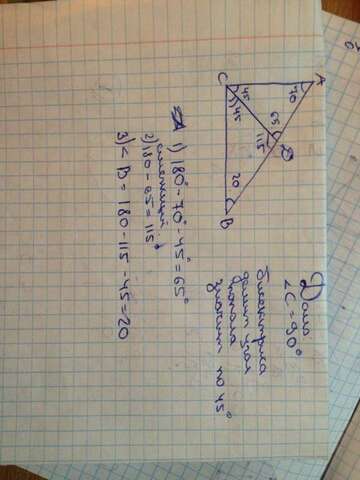 A
70
C
45
45
65
115
D
20
B
Дано
∠C = 90°
биссектриса
делит угол
пополам
значит по 45°
1) 180° - 70° - 45° = 65°
смежный
2) 180 - 65 = 115
3) < B = 180 - 115 - 45 = 20